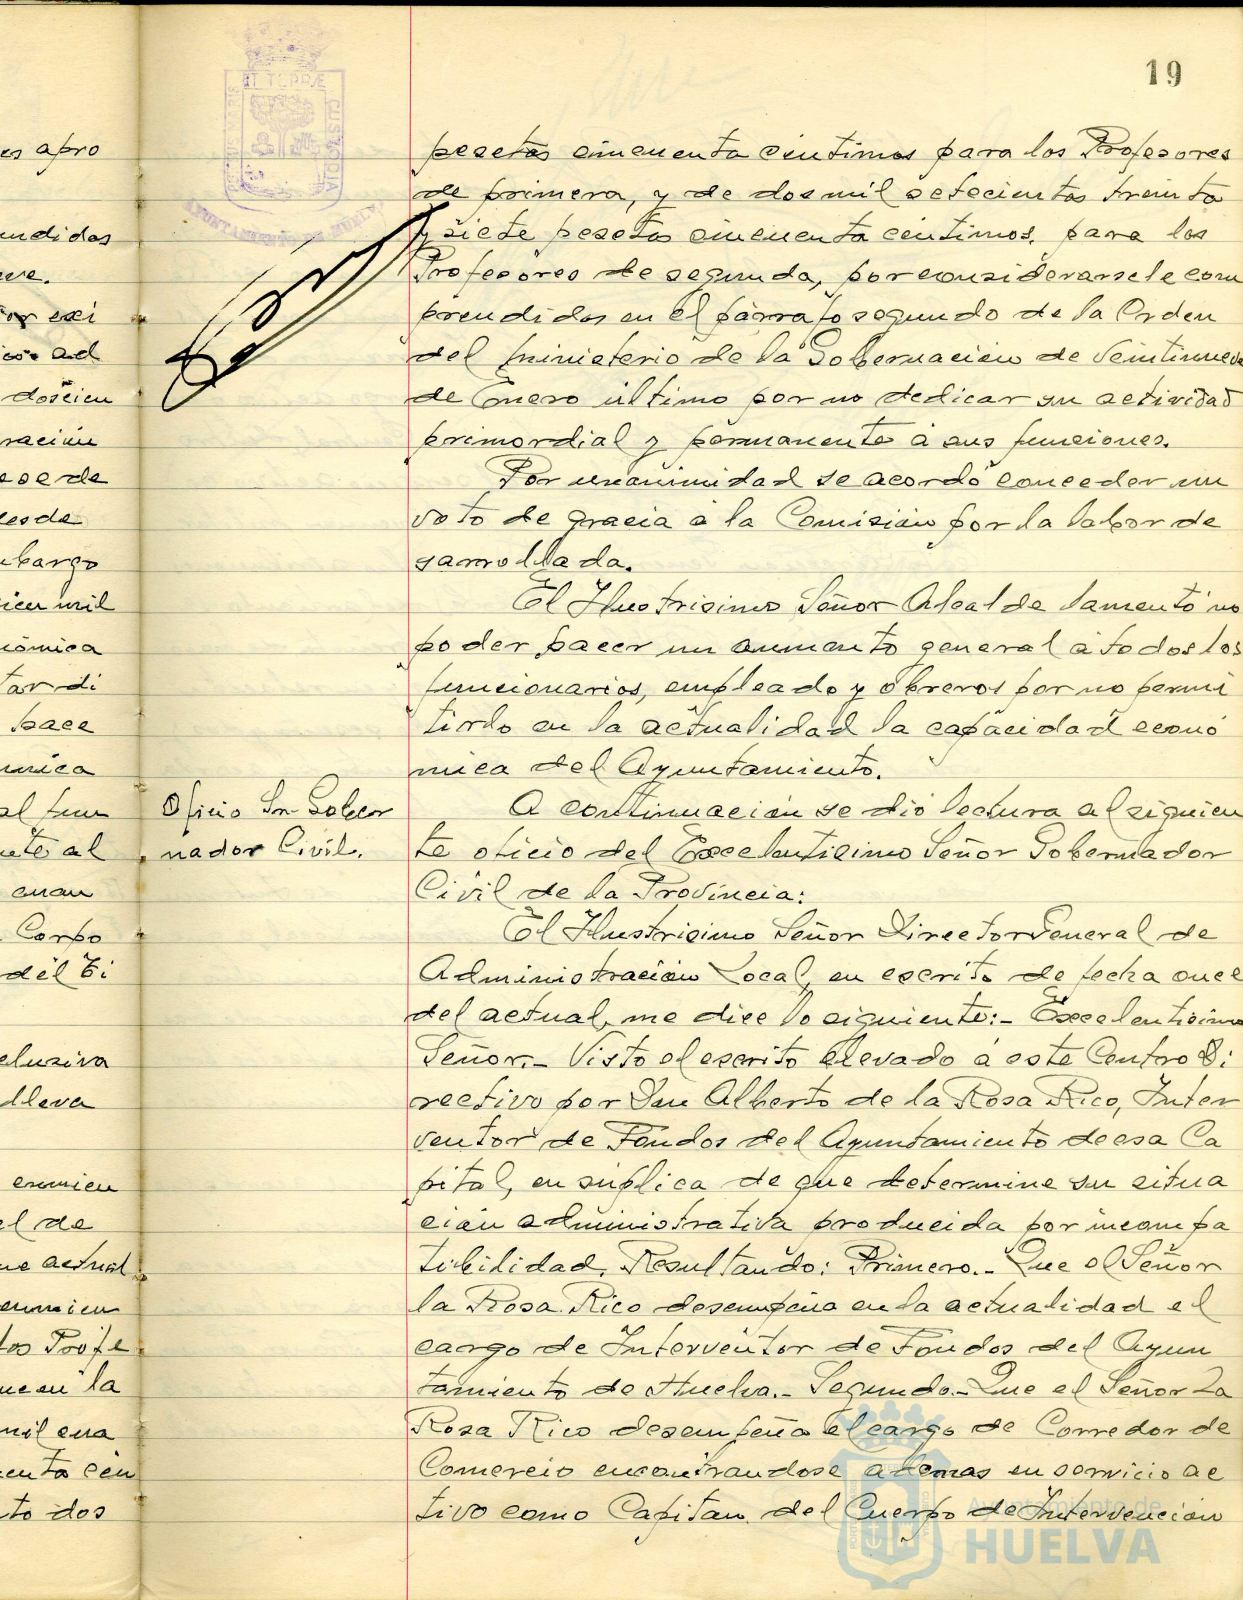 19
PORTUS MARIS ET TERRÆ CUSTODIA
AYUNTAMIENTO DE HUELVA
es apro
endidas
eve.
or exi
icos ad
doscien
ración
ese de
desde
mbargo
cien mil
nómica
tar di
hace
ómica
al fun
nte al
cuan
Corpo
del Ti
clusiva
lleva
enmien
el de
ue actual
enmien
los Profe
ue en la
mil cua
enta cén
to dos
pesetas cincuenta céntimos para los Profesores
de primera, y de dos mil setecientas treinta
y siete pesetas cincuenta céntimos, para los
Profesores de segunda, por considerarsele com
prendidos en el párrafo segundo de la Orden
del Ministerio de la Gobernación de Veintinueve
de Enero último por no dedicar su actividad
primordial y permanente á sus funciones.
Por unanimidad se acordó conceder un
voto de gracia á la Comisión por la labor de
sarrollada.
El Ilustrisimo Señor Alcalde lamentó no
poder hacer un aumento general á todos los
funcionarios, empleado y obreros por no permi
tirlo en la actualidad la capacidad econó
mica del Ayuntamiento.
Oficio Sr. Gober
nador Civil.
A continuación se dió lectura al siguien
te oficio del Excelentisimo Señor Gobernador
Civil de la Provincia:
El Ilustrisimo Señor Director General de
Administración Local, en escrito de fecha once
del actual, me dice lo siguiente:- Excelentisimo
Señor.- Visto el escrito elevado á este Centro Di
rectivo por Don Alberto de la Rosa Rico, Inter
ventor de Fondos del Ayuntamiento de esa Ca
pital, en súplica de que determine su situa
ción administrativa producida por incompa
tibilidad. Resultando: Primero.- Que el Señor
la Rosa Rico desempeña en la actualidad el
cargo de Interventor de Fondos del Ayun
tamiento de Huelva.- Segundo.- Que el Señor La
Rosa Rico desempeña el cargo de Corredor de
Comercio encontrandose ademas en servicio ac
tivo como Capitan del Cuerpo de Intervención
Ayuntamiento de
HUELVA